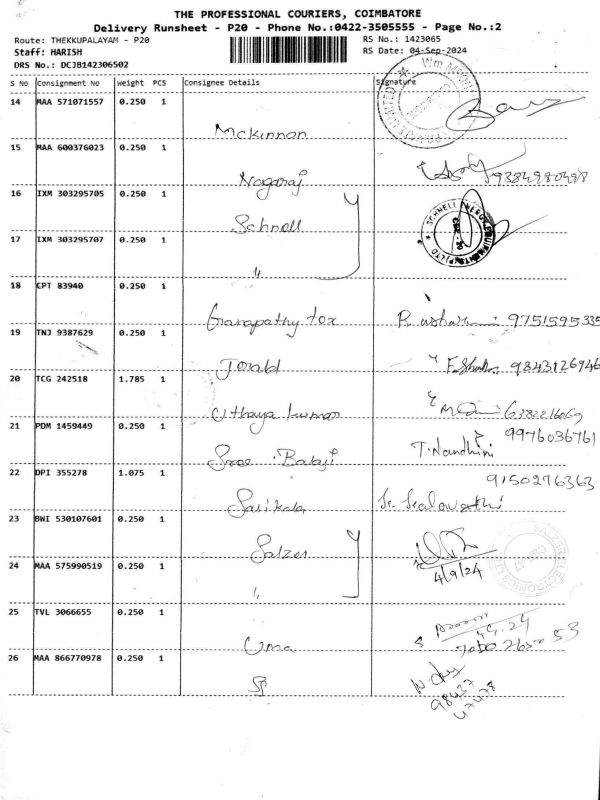 THE PROFESSIONAL COURIERS, COIMBATORE
Delivery Runsheet - P20 - Phone No.:0422-3505555 - Page No.:2
Route: THEKKUPALAYAM - P20 RS No.: 1423065
Staff: HARISH RS Date: 04-Sep-2024
DRS No.: DCJB142306502
S No Consignment No Weight PCS Consignee Details Signature
14 MAA 571071557 0.250 1
Mckinnon
15 MAA 600376023 0.250 1
Nagaraj 9384980498
16 IXM 303295705 0.250 1
Schnell
17 IXM 303295707 0.250 1
"
18 CPT 83940 0.250 1
Ganapathy tex 9751595335
19 TNJ 9387629 0.250 1
Jorald 9843126946
20 TCG 242518 1.785 1
Uthaya kumar
21 PDM 1459449 0.250 1 9976036761
Sree Balaji T. Nandhini
22 DPI 355278 1.075 1 9150276363
Sasikala
23 BWI 530107601 0.250 1
Salzer
24 MAA 575990519 0.250 1 4/9/24
"
25 TVL 3066655 0.250 1
Uma
26 MAA 866770978 0.250 1
SP
98437
47478